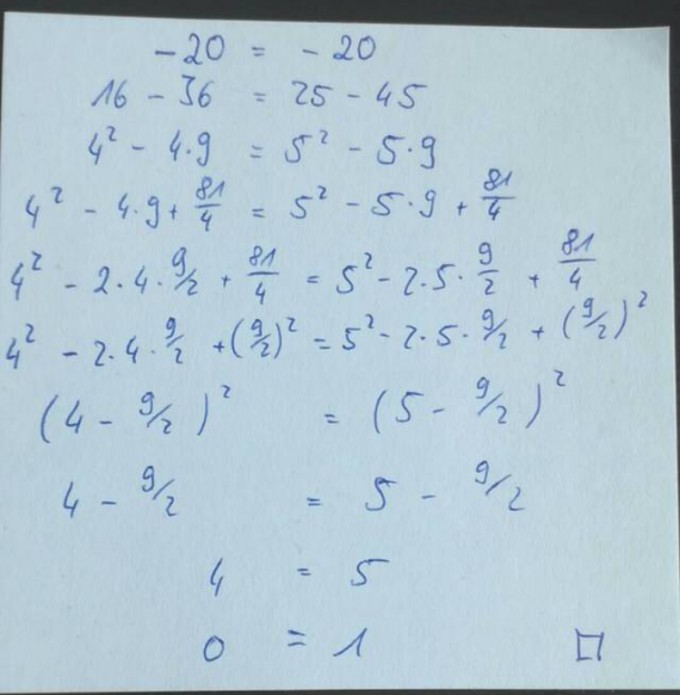 -20 = -20
16 - 36 = 25 - 45
4² - 4·9 = 5² - 5·9
4² - 4·9 + 81/4 = 5² - 5·9 + 81/4
4² - 2·4·9/2 + 81/4 = 5² - 2·5·9/2 + 81/4
4² - 2·4·9/2 + (9/2)² = 5² - 2·5·9/2 + (9/2)²
(4 - 9/2)² = (5 - 9/2)²
4 - 9/2 = 5 - 9/2
4 = 5
0 = 1 □